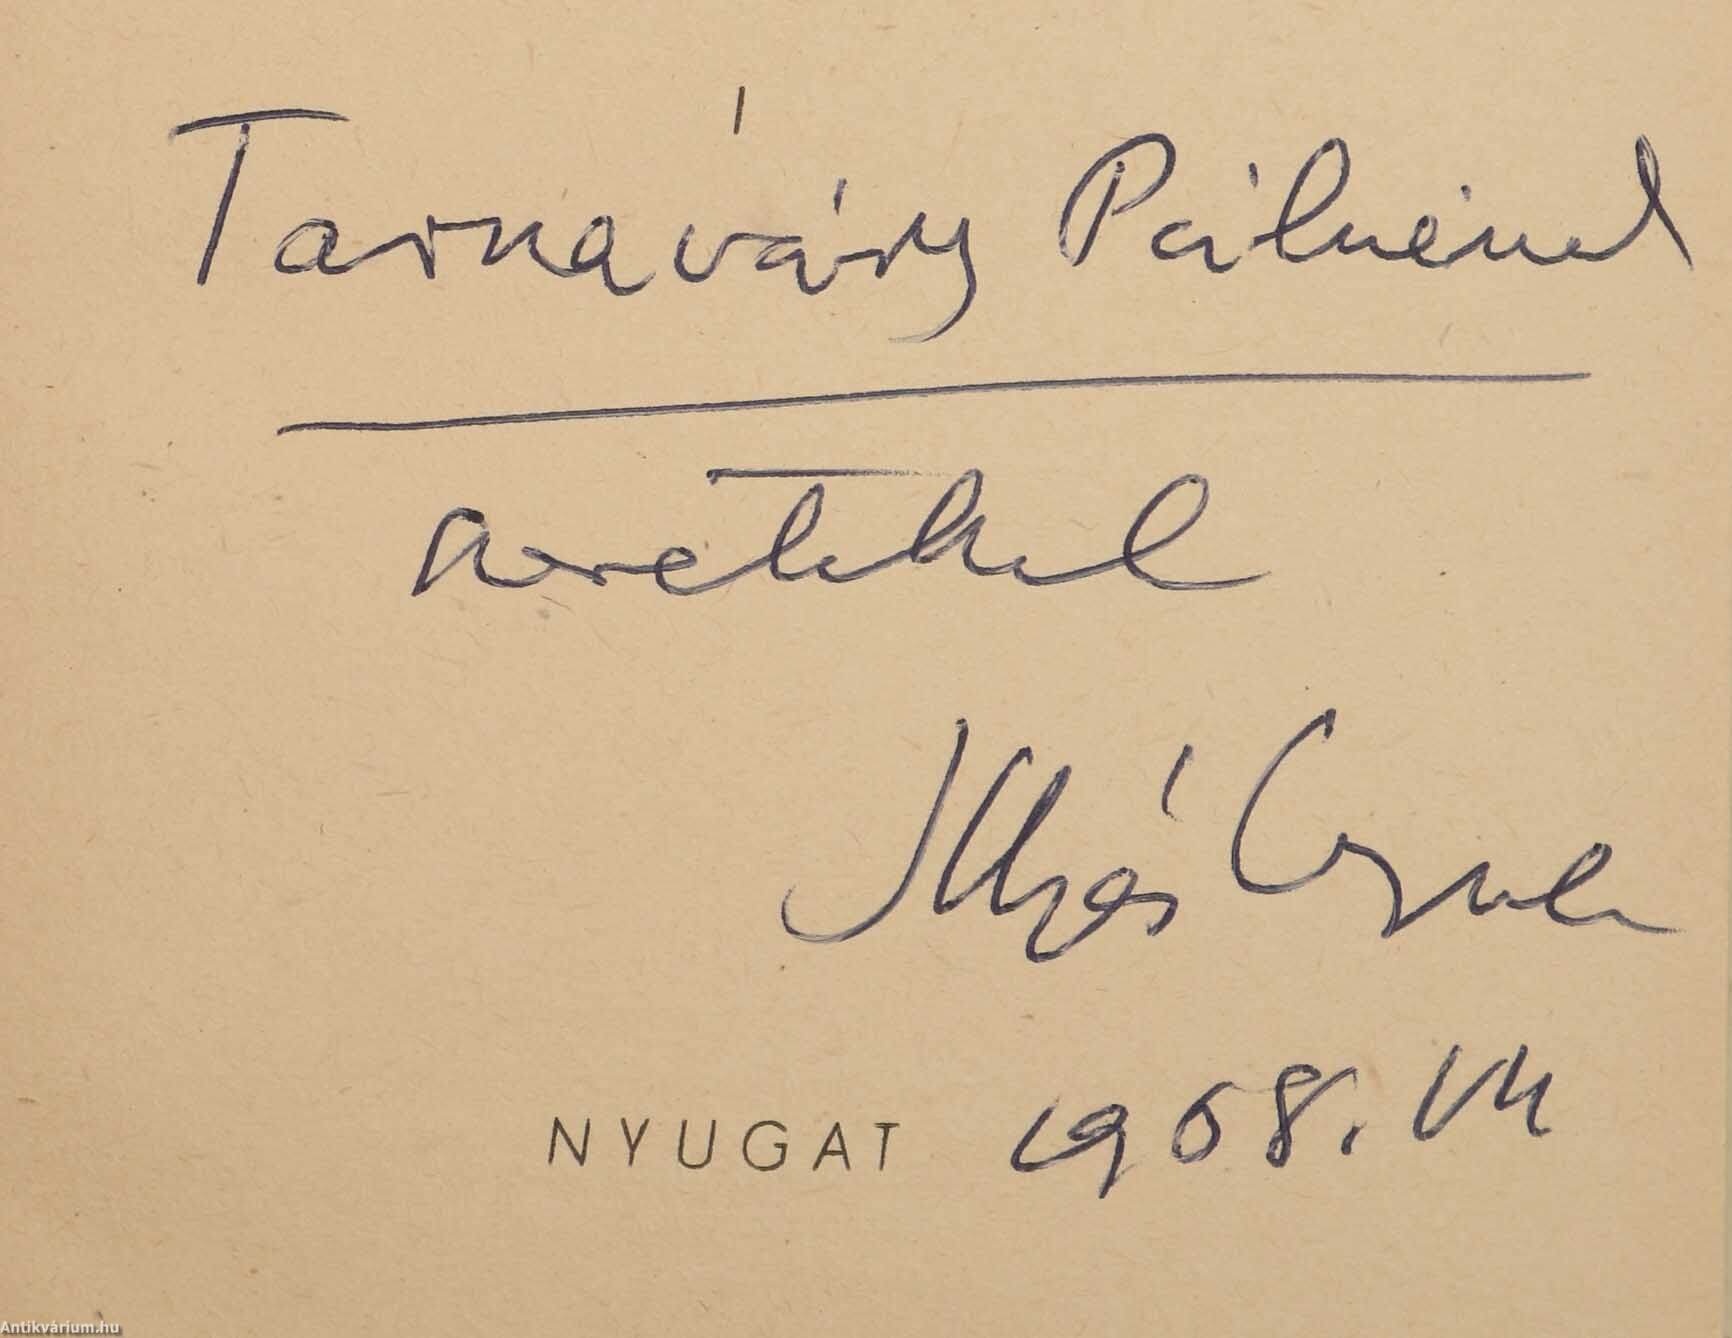 Tarnaváry Pálnénak
szeretettel
Illyés Gyula
NYUGAT 1968. VII
Antikvárium.hu